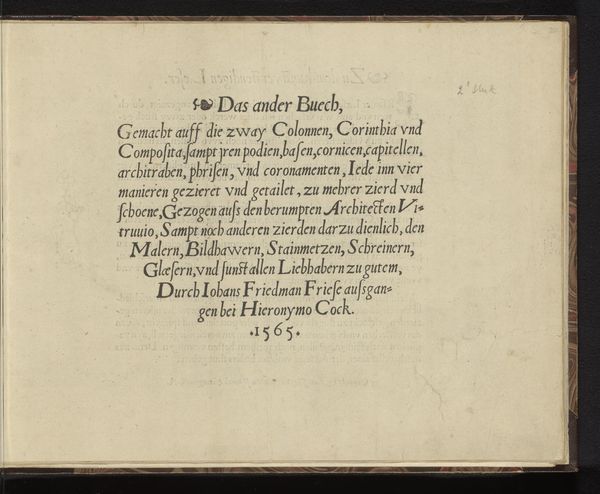 Das ander Buech,
Gemacht auff die zway Colonnen, Corinthia vnd
Composita, sampt jren podien, basen, cornicen, capitellen,
architraben, phrisen, vnd coronamenten, Iede inn vier
manieren gezieret vnd getailet, zu mehrer zierd vnd
schoene, Gezogen auss den berumpten Architecten Vi=
truuio, Sampt noch anderen zierden darzu dienlich, den
Malern, Bildhawern, Stainmetzen, Schreinern,
Glæsern, vnd sunst allen Liebhabern zu gutem,
Durch Iohans Friedman Friese aussgan=
gen bei Hieronymo Cock.
.1565.